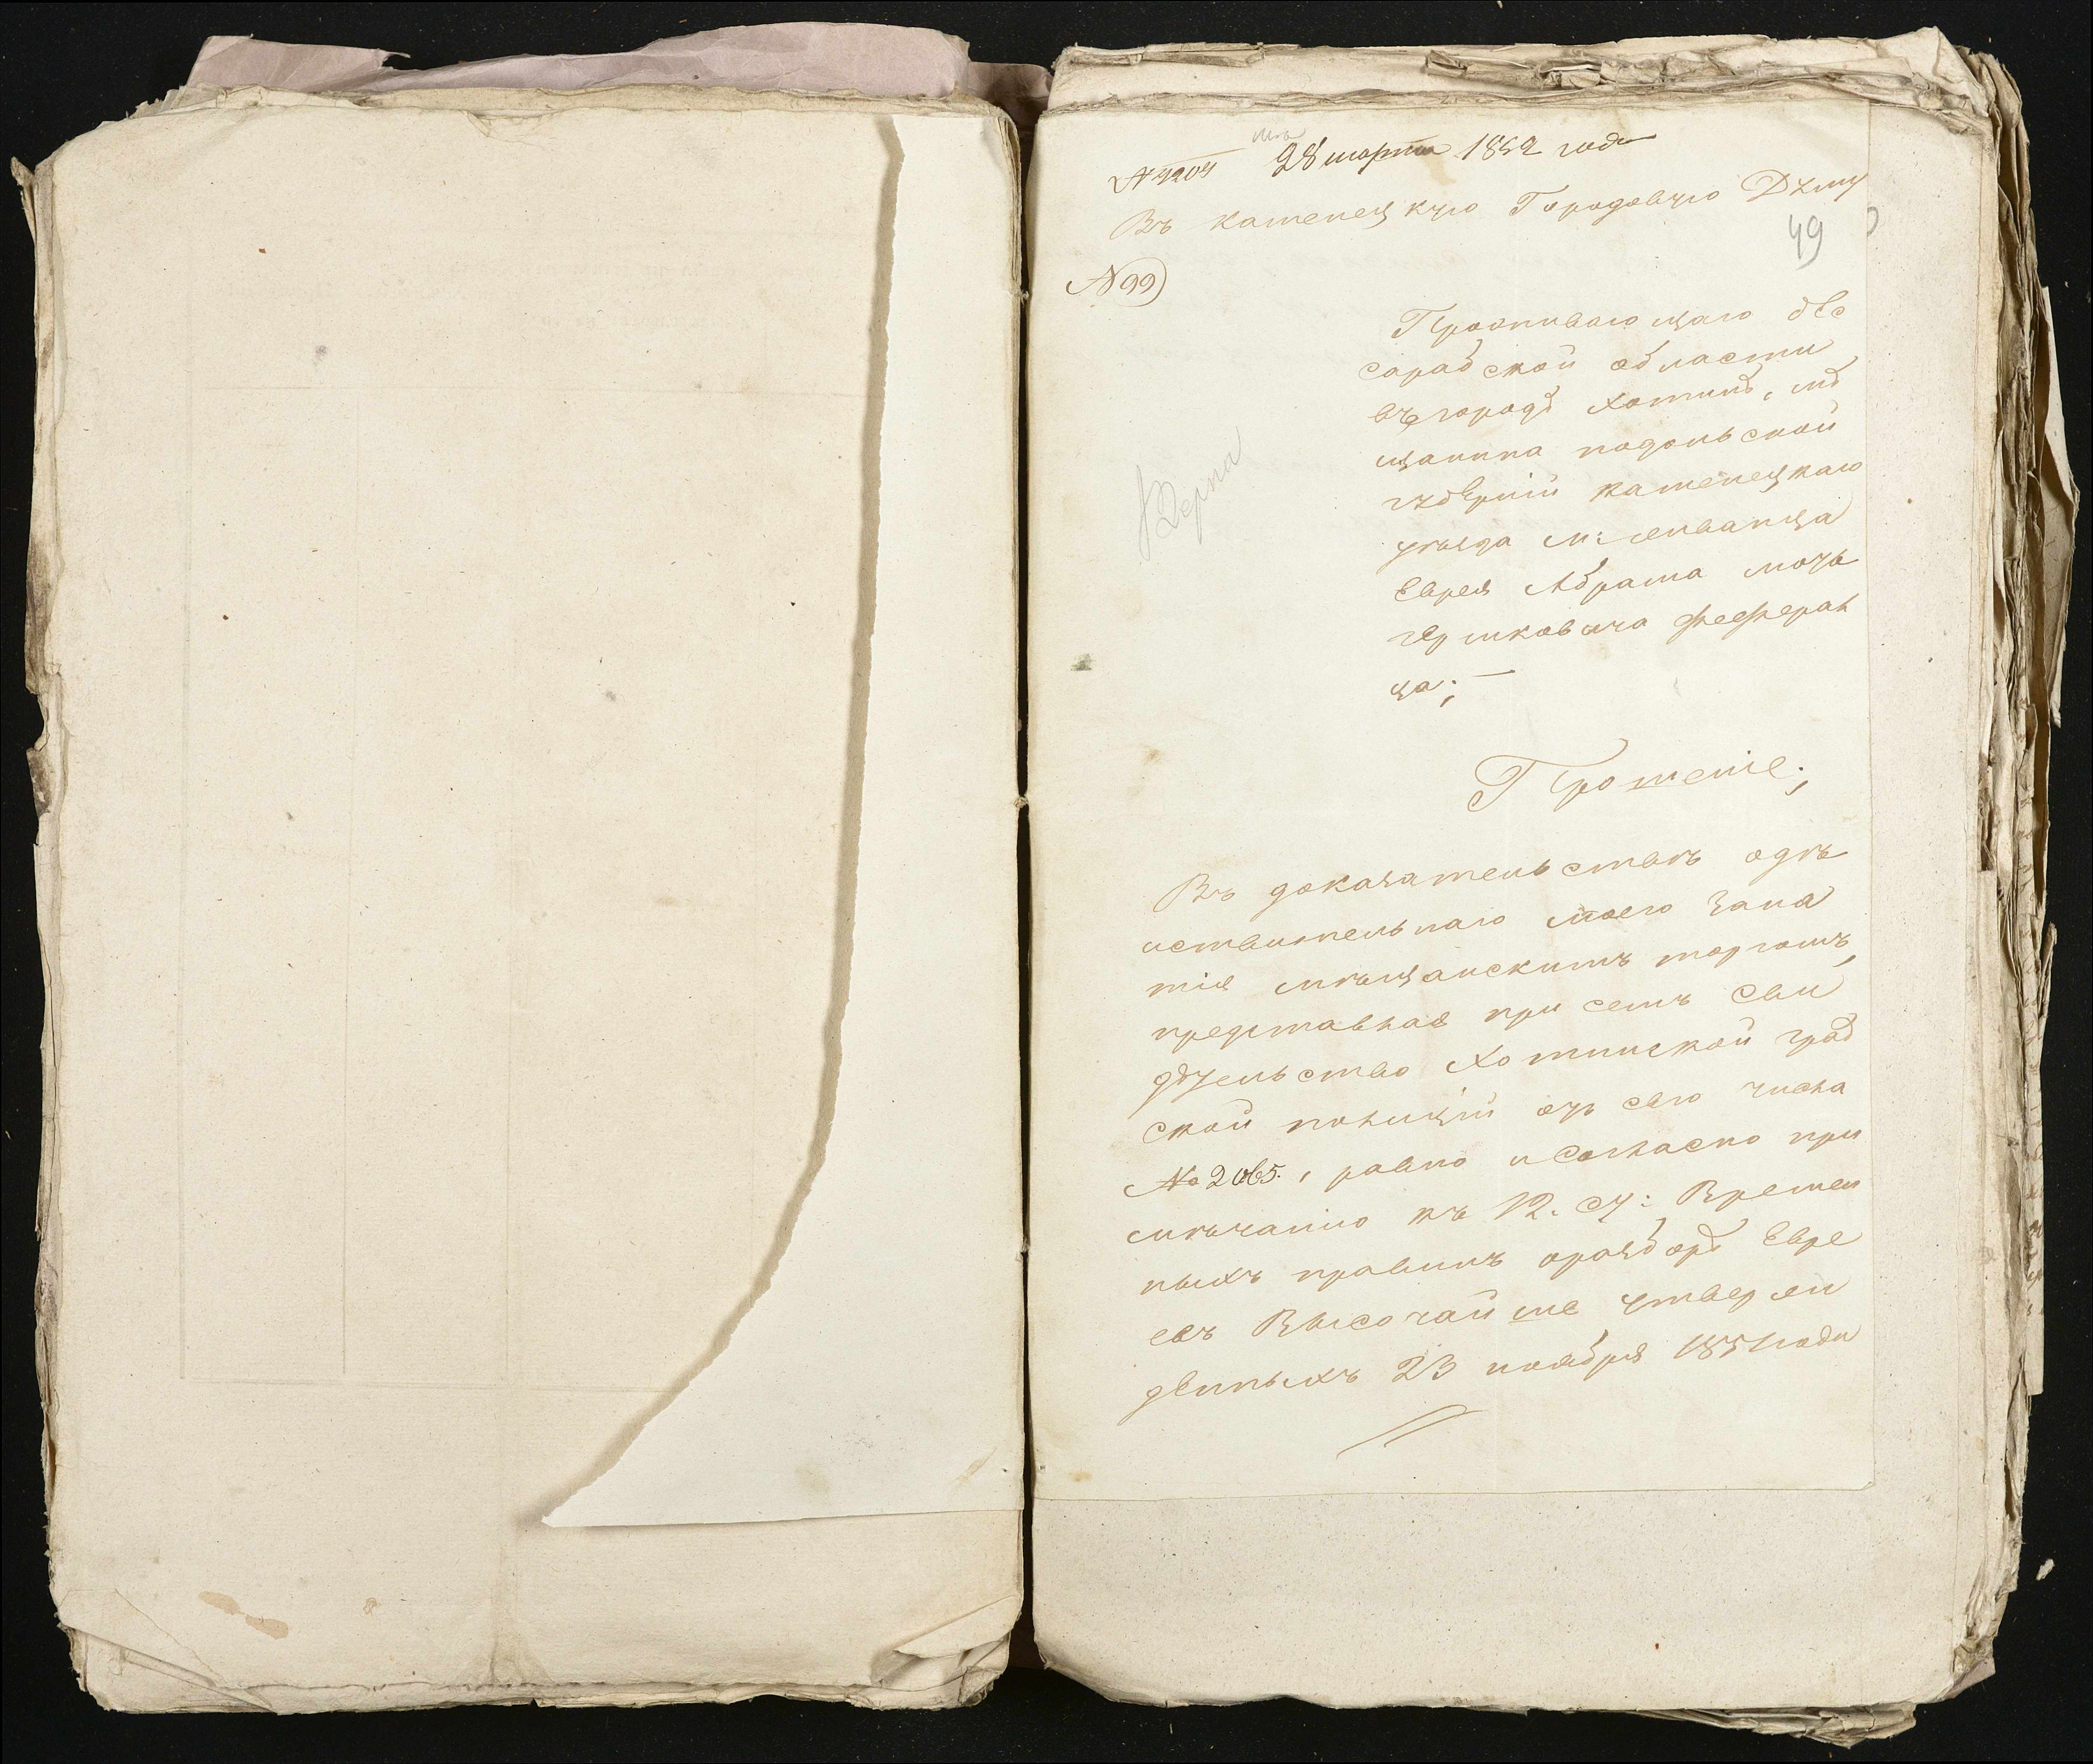 № 4204 28 марта 1852 года
Въ каменецкую Городовую Думу
49
№ 99)
Проживающаго бес
сарабской области
въ городѣ Хотинѣ, мѣ
щанина подольской
губерніи каменецкаго
уѣзда м: жванца
Еврея Абрама мошъ
гершковича фефферъ
ца;
Прошеніе;
Въ доказательствѣ одѣ
иствительнаго моего заня
тія мѣщанскимъ торгомъ,
представляя при семъ сви
дѣтельство Хотинской град
ской полиціи отъ сего числа
№ 2065., равно и согласно при
мѣчанію къ 12. ст: Времен
ныхъ правилъ оразборѣ Евре
евъ Высочайше утвержд
денныхъ 23 ноября 1851 года